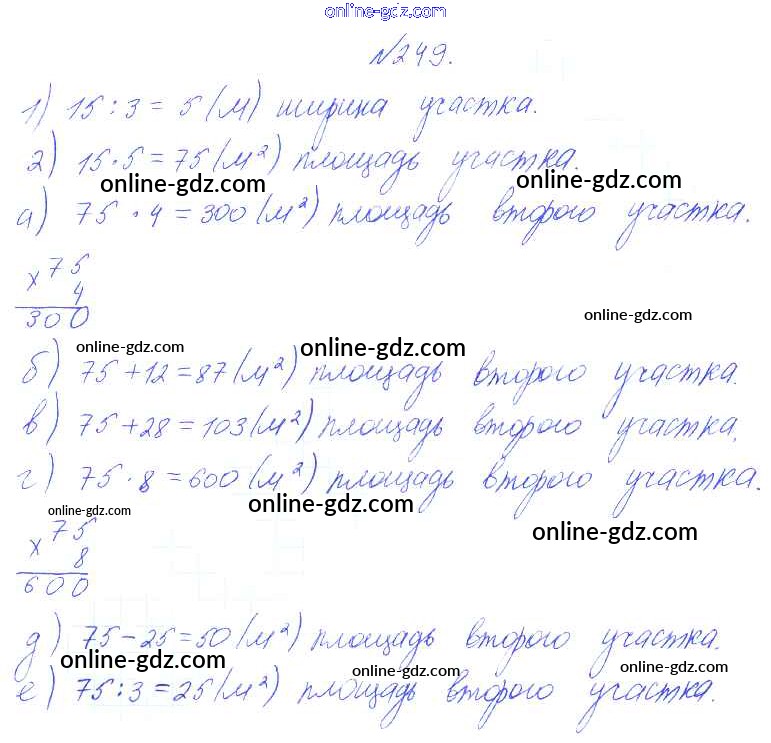 online-gdz.com
№249.
1) 15 : 3 = 5 (м) ширина участка.
2) 15 · 5 = 75 (м²) площадь участка.
online-gdz.com online-gdz.com
а) 75 · 4 = 300 (м²) площадь второго участка.
x 75
4
300
online-gdz.com
online-gdz.com online-gdz.com
б) 75 + 12 = 87 (м²) площадь второго участка.
в) 75 + 28 = 103 (м²) площадь второго участка.
г) 75 · 8 = 600 (м²) площадь второго участка.
online-gdz.com online-gdz.com
x 75
8
600
online-gdz.com
д) 75 - 25 = 50 (м²) площадь второго участка.
online-gdz.com online-gdz.com online-gdz.com
е) 75 : 3 = 25 (м²) площадь второго участка.
online-gdz.com